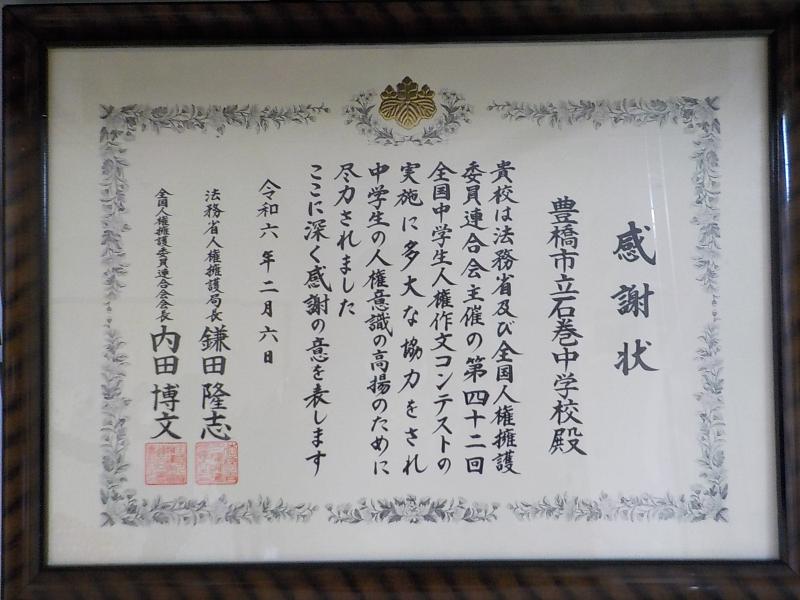 感謝状
豊橋市立石巻中学校殿
貴校は法務省及び全国人権擁護
委員連合会主催の第四十二回
全国中学生人権作文コンテストの
実施に多大な協力をされ
中学生の人権意識の高揚のために
尽力されました
ここに深く感謝の意を表します
令和六年二月六日
法務省人権擁護局長 鎌田隆志
全国人権擁護委員連合会会長 内田博文